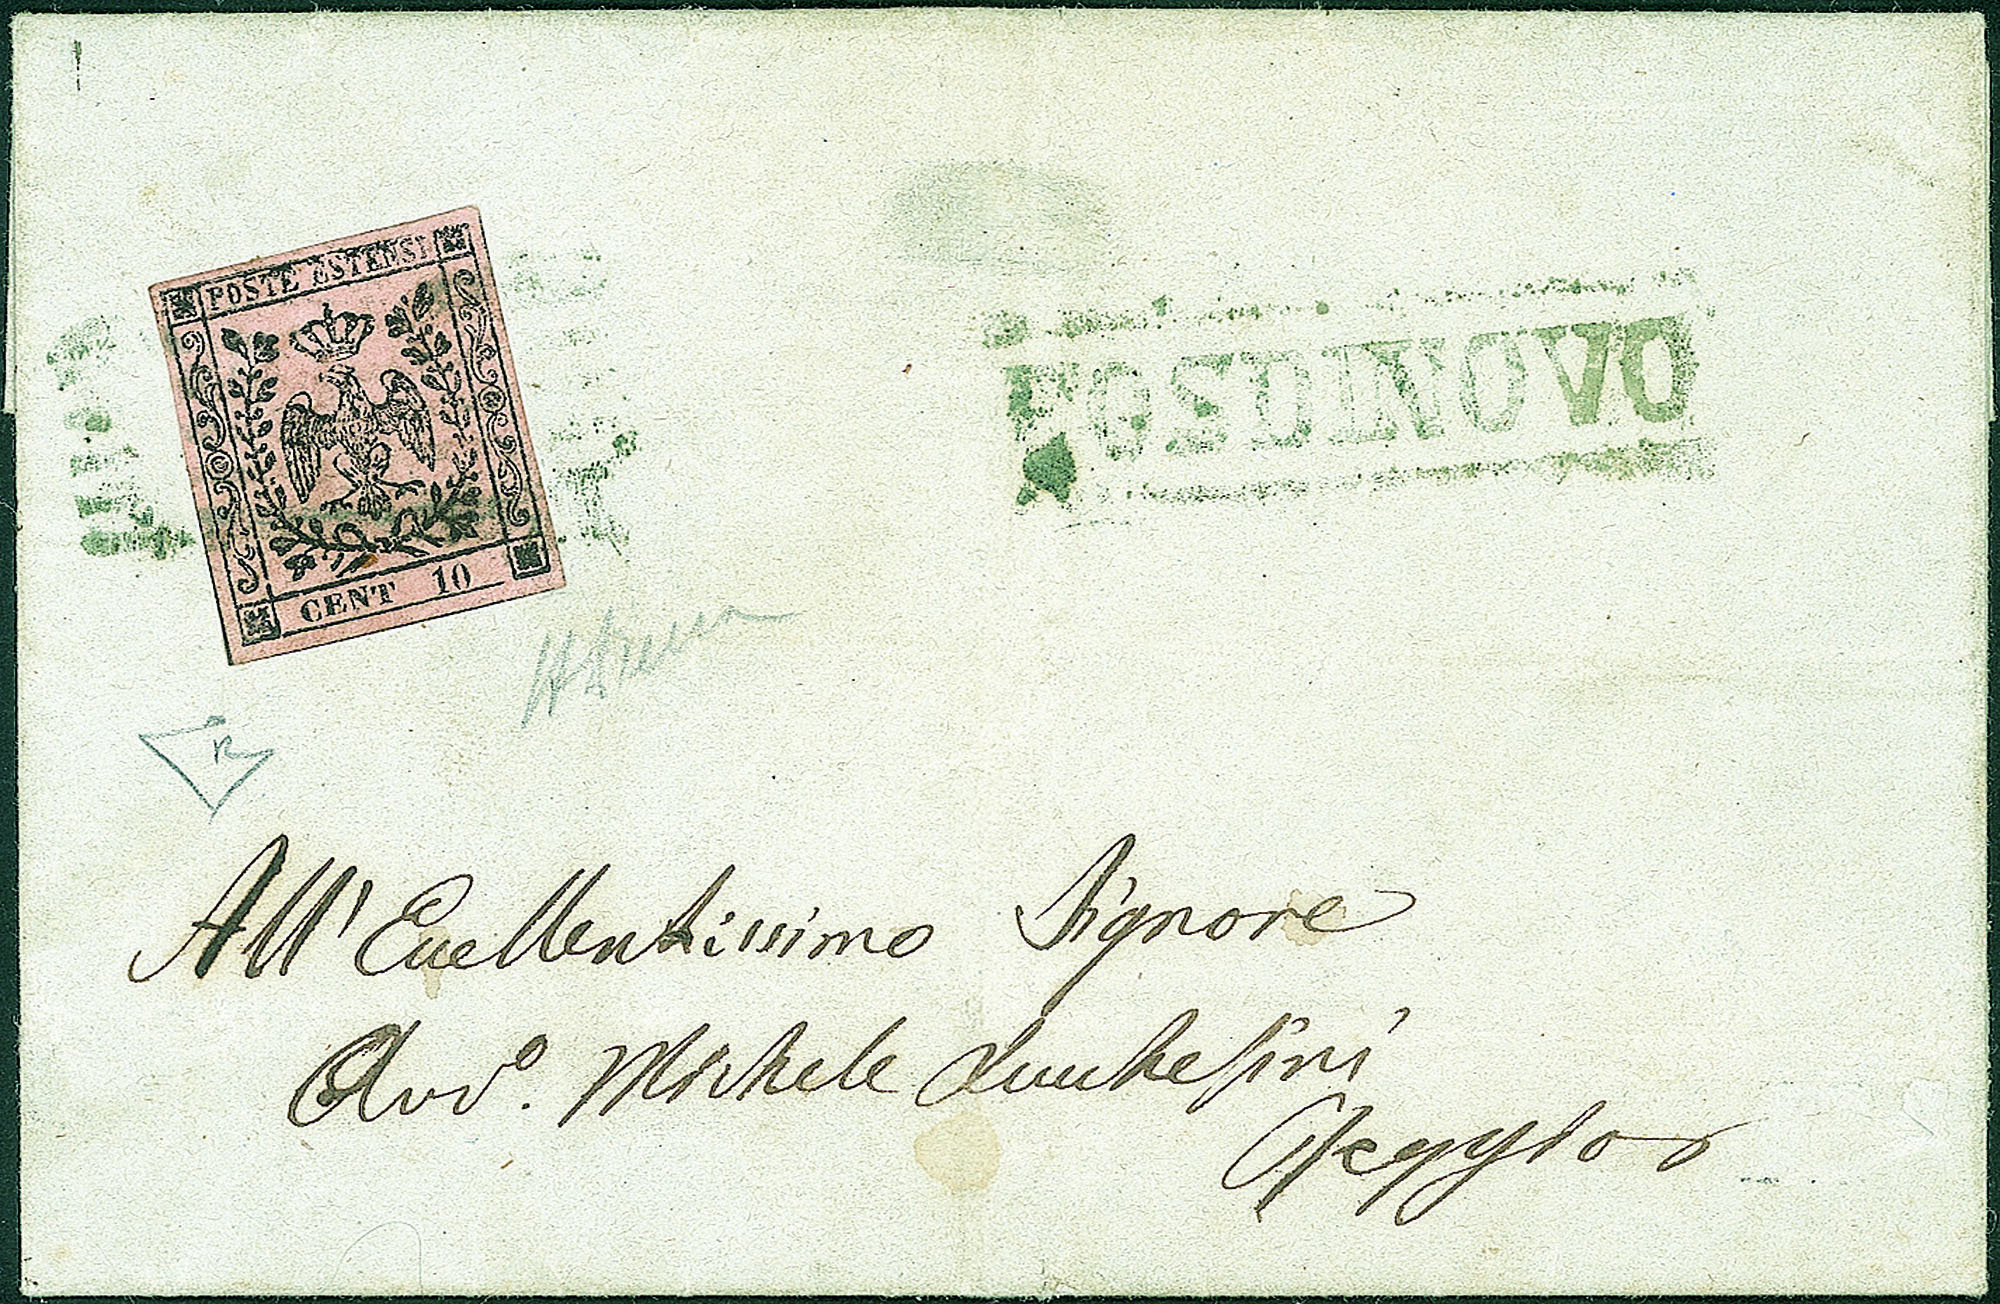 POSTE ESTENSI
CENT 10
FOSDINOVO
All' Eccellentissimo Signore
Avvo. Michele Lucchesini
Reggio